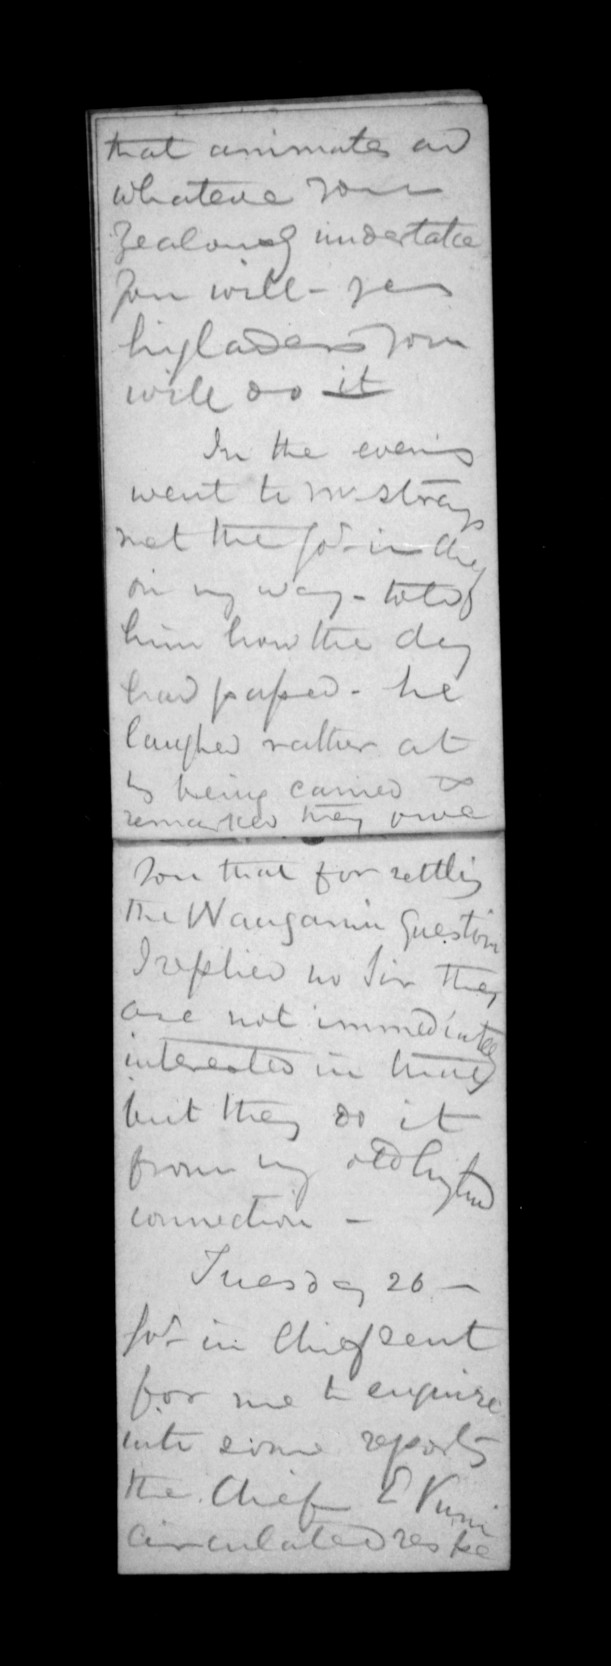 that animates and
whatever you
zealously undertake
you will - yes
highlanders you
will do it
In the evening
went to Mr Strangs
met the Gov. in Chief
on my way - told
him how the day
had passed - he
laughed rather at
my being carried &
remarked they owe
you that for settling
the Wanganui question
I replied no Sir they
are not immediately
interested in that
but they do it
from my old highland
connection -
Tuesday 26 -
Gov. in Chief sent
for me to enquire
into some reports
the Chief E Kuni
circulated respe